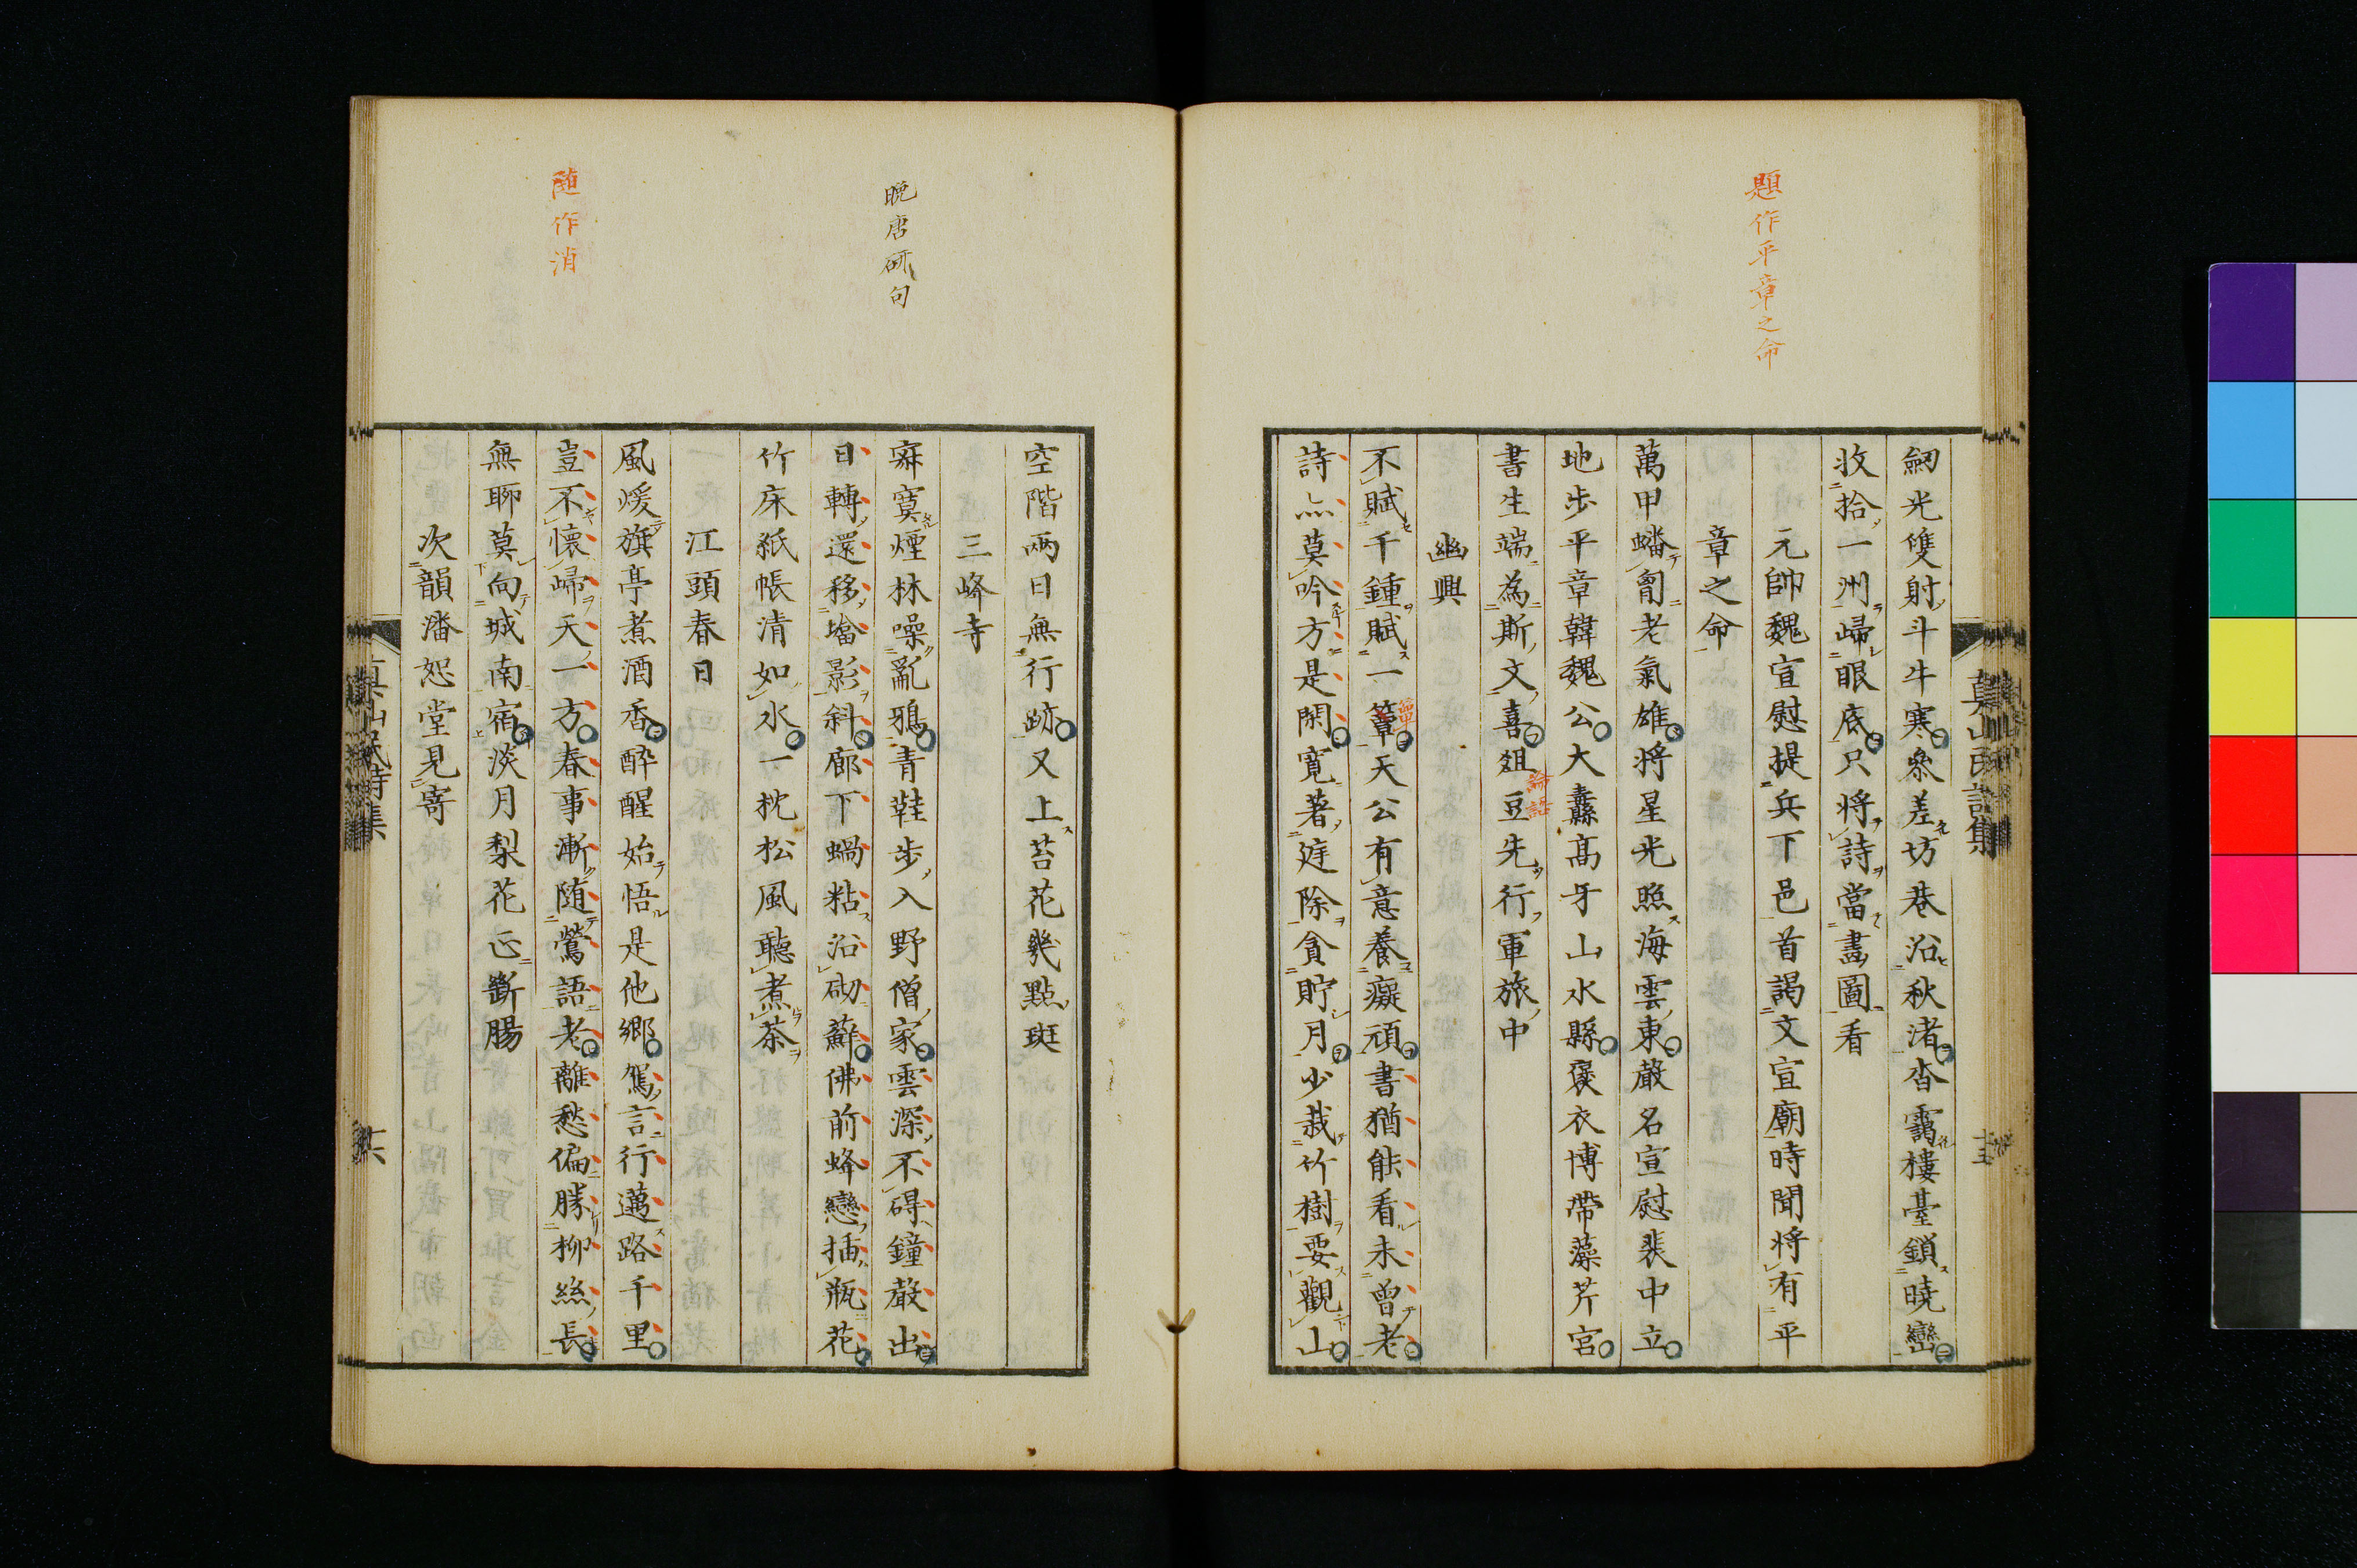 題作平章之命
劒光雙射斗牛寒參差坊巷沿秋渚杳靄樓臺鎖曉巒
收拾一州歸眼底只將詩當畫圖看
元帥魏宣慰提兵下邑首謁文宣廟時聞將有平
章之命
萬甲蟠胷老氣雄將星光照海雲東嚴名宣慰裴中立
地步平章韓魏公大纛髙牙山水縣褒衣博帶藻芹宮
書生端為斯文喜俎豆先行軍旅中
論語
幽興
不賦千鍾賦一簞天公有意養癡頑書猶能看未曾老
簞
詩亦莫吟方是閑寛著庭除貪貯月少栽竹樹要觀山
真山民詩集
十五
晚唐研句
随作消
空階兩日無行跡又上苔花幾點斑
三峰寺
寂寞煙林噪亂鴉青鞋步入野僧家雲深不碍鐘聲出
日轉還移塔影斜廊下蝸粘沿砌蘚佛前蜂戀插瓶花
竹床紙帳清如水一枕松風聽煮茶
江頭春日
風煖旗亭煮酒香醉醒始悟是他鄉駕言行邁路千里
豈不懷歸天一方春事漸随鶯語老離愁偏勝柳絲長
無聊莫向城南宿淡月梨花正斷腸
次韻潘恕堂見寄
真山民詩集
十六